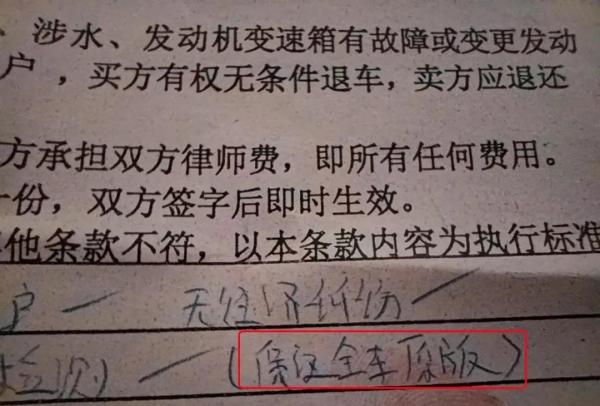 、涉水、发动机变速箱有故障或变更发动
户，买方有权无条件退车，卖方应退还
方承担双方律师费，即所有任何费用。
份，双方签字后即时生效。
他条款不符，以本条款内容为执行标准
户 一 无经济纠纷 一
一 （保证全车原版）